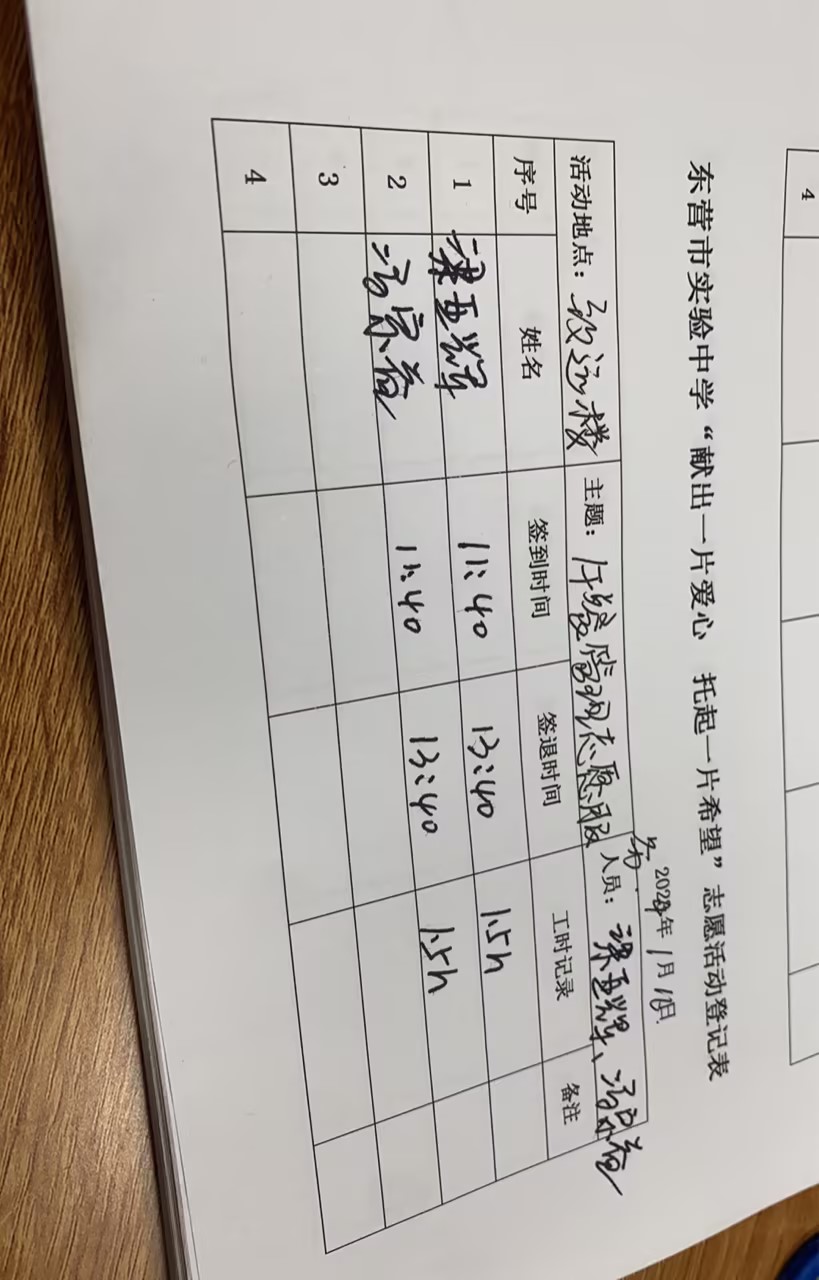 4
东营市实验中学“献出一片爱心 托起一片希望”志愿活动登记表
2024年1月18日
活动地点：致远楼 主题：午餐管理志愿服务 人员：梁亚辉、冯宗益
序号 姓名 签到时间 签退时间 工时记录 备注
1 梁亚辉 11:40 13:40 1.5h
2 冯宗益 11:40 13:40 1.5h
3
4